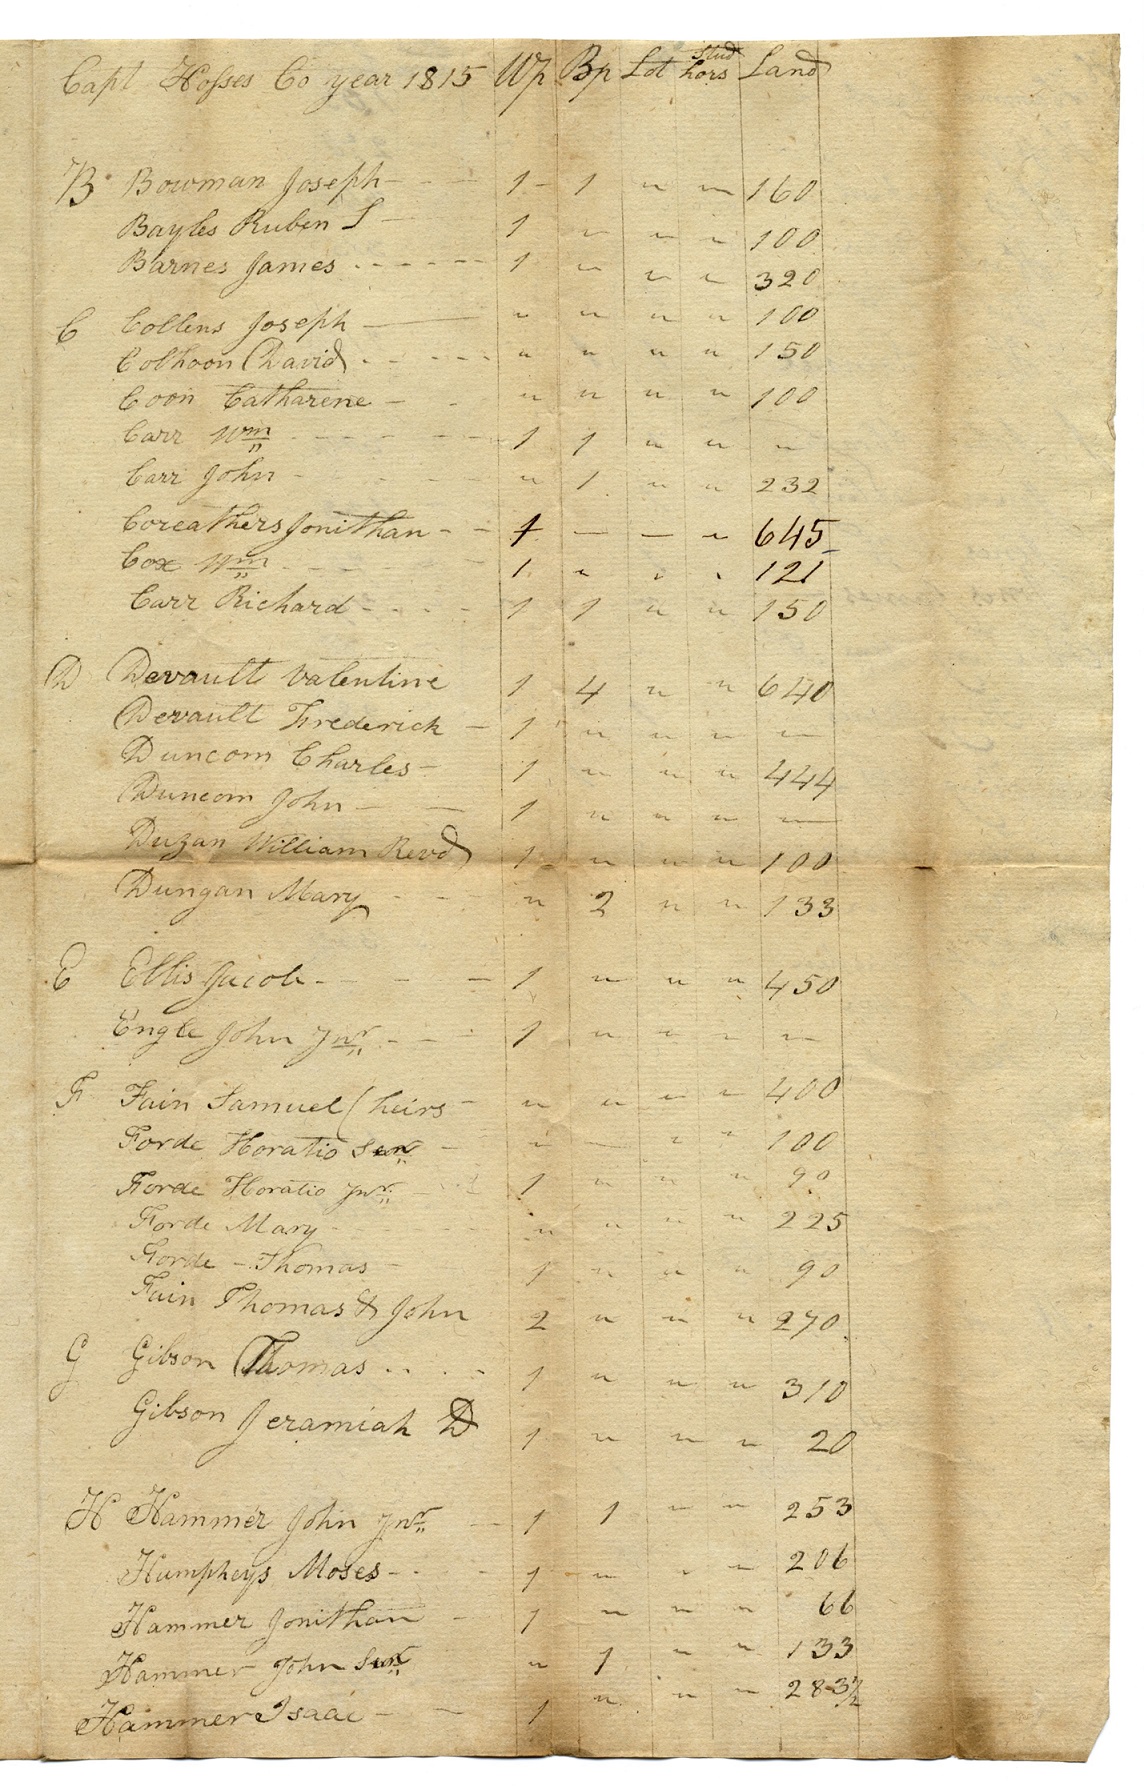 Capt Hosses Co year 1815 Wp Bp Lot Stud hors Land
B Bowman Joseph - - - 1 - 1 " " 160
Bayles Ruben S - 1 " " " 100
Barnes James - - - - - - 1 " " " 320
C Collens Joseph — " " " " 100
Colhoon David - - - - - " " " " 150
Coon Catharene - - " " " " 100
Carr Wm - - - - - - 1 1 " " "
Carr John - - - - " 1 " " 232
Coreathers Jonithan - - 1 — — " 645
Cox Wm - - - - - 1 " " " 121
Carr Richard - - - - 1 1 " " 150
D Devault Valentine 1 4 " " 640
Devault Frederick - 1 " " " —
Duncom Charles - 1 " " " 444
Duncom John - - 1 " " " —
Duzan William Revd 1 " " " 100
Dungan Mary - - - " 2 " " 133
E Ellis Jacob - - - - 1 " " " 450
Engle John Jnr - - - 1 " " " "
F Fain Samuel ( heirs - " " " " 400
Forde Horatio Senr - " — " " 100
Forde Horatio Jnr - - 1 " " " 90
Forde Mary - - - " " " " 225
Forde - Thomas - 1 " " " 90
Fain Thomas & John 2 " " " 270
G Gibson Thomas - - - - 1 " " " 310
Gibson Jeramiah D 1 " " " 20
H Hammer John Jnr - 1 1 " " 253
Humpheys Moses - - - 1 " " " 206
Hammer Jonithan - 1 " " " 66
Hammer John Senr " 1 " " 133
Hammer Isaac - - 1 " " " 283½